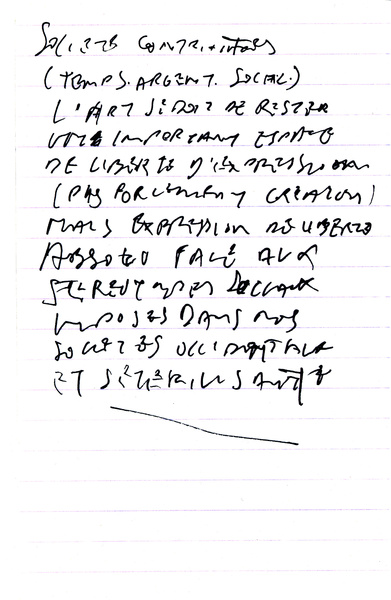 SOCIETES CONTRAIGNANTES
(TEMPS. ARGENT. SOCIAL.)
L'ART SE DOIT DE RESTER
IMPORTANT ESPACE
DE LIBERTE D'EXPRESSION
(PAS FORCEMENT CREATION)
MAIS EXPRESSION DE LIBERTE
FACE AUX
STEREOTYPES SOCIAUX
IMPOSES DANS NOS
SOCIETES OCCIDENTALES
ET